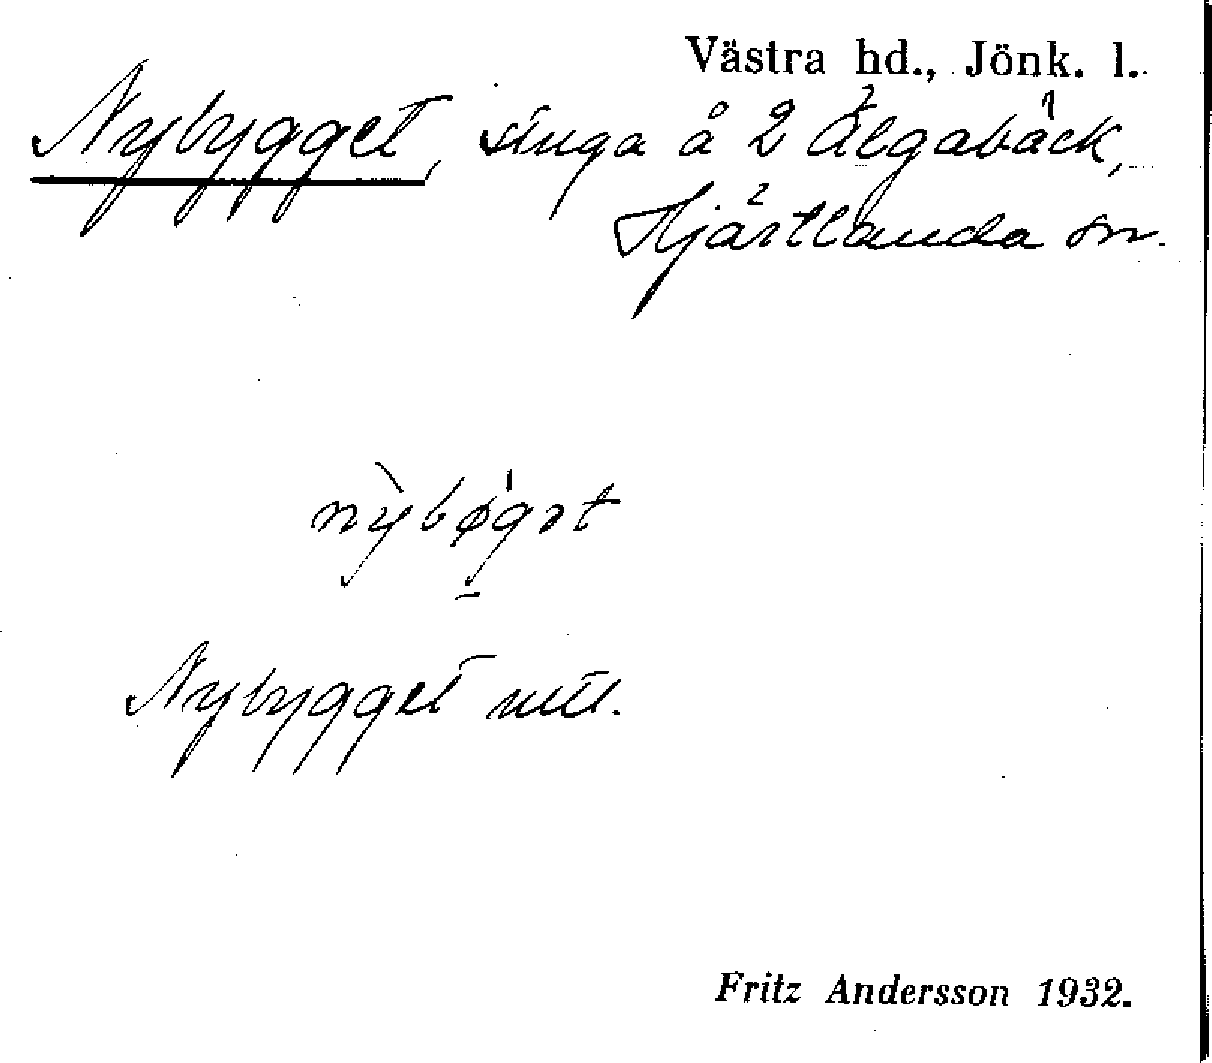 Västra hd., Jönk. l.
Nybygget, stuga å 2 Älgabäck,
Hjärtlanda sn.
nỳbø̀gət
Nybygget utt.
Fritz Andersson 1932.